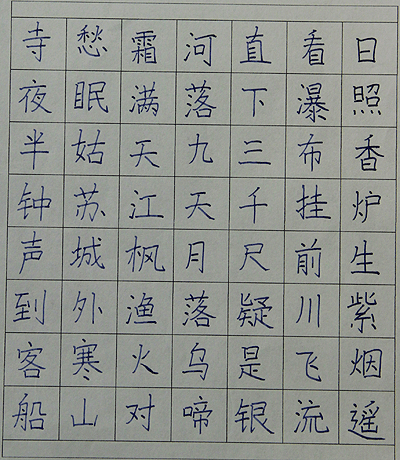 日照香炉生紫烟遥
看瀑布挂前川飞流
直下三千尺疑是银
河落九天月落乌啼
霜满天江枫渔火对
愁眠姑苏城外寒山
寺夜半钟声到客船